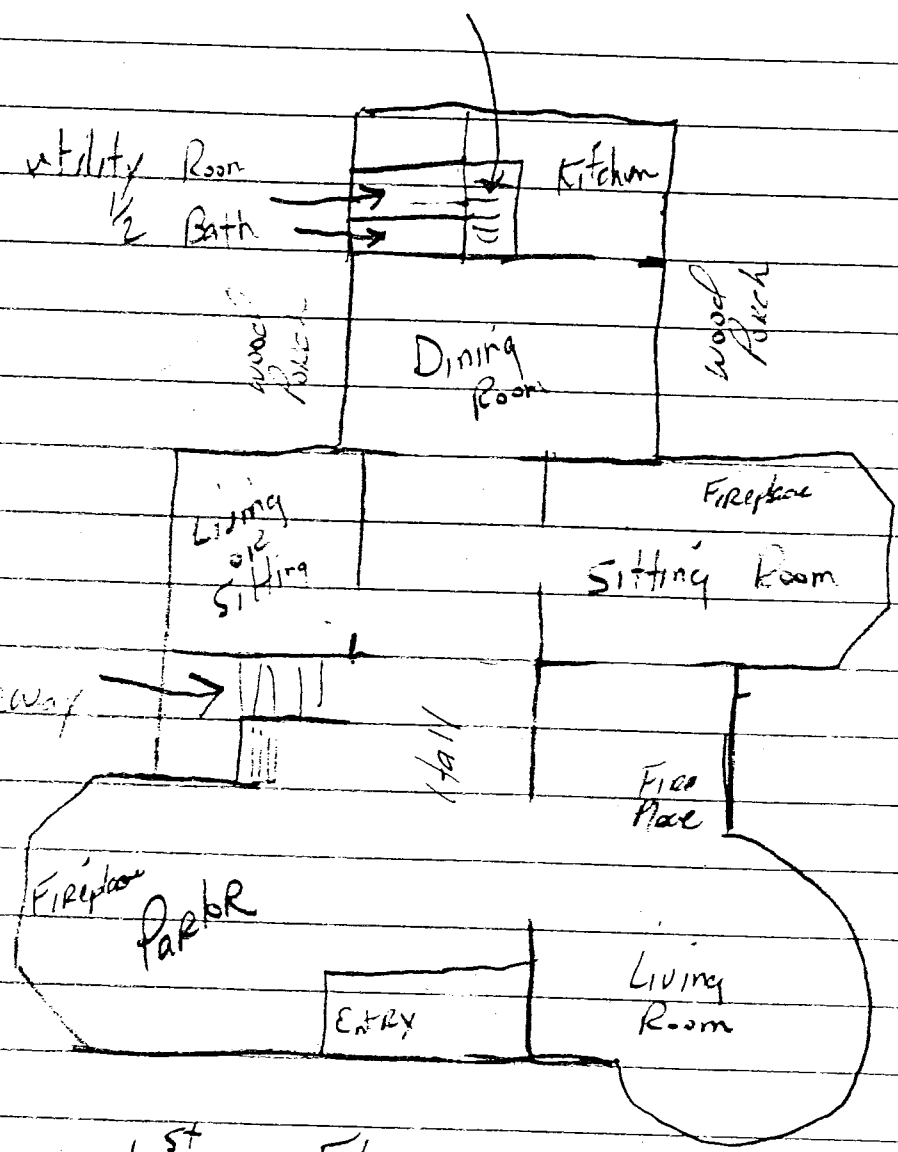 utility Room
Kitchen
1/2 Bath
Wood
Porch
Wood
Porch
Dining
Room
Living
or
Sitting
Fireplace
Sitting Room
way
Hall
Fire
Place
Fireplace
Parlor
Living
Room
Entry
1st